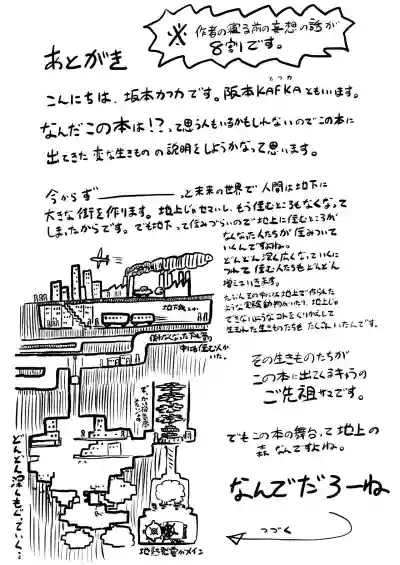 ※作者の寝る前の妄想の話が
8割です。
あとがき
こんにちは、坂本カフカです。阪本KAFKAともいいます。
カツカ
なんだこの本は!?って思う人もいるかもしれないのでこの本に
出てきた変な生きものの説明をしようかなって思います。
今からず―――っと未来の世界で人間は地下に
大きな街を作ります。地上じゃせまいし、もう住むところもなくなって
しまったからです。でも地下って住みづらいので地上に住むところが
なくなった人たちが住みついて
いくんですよね。
どんどん深く広くなっていくに
つれて住む人たちもどんどん
増えていきます。
たぶんその中には地上で作られた
ような実験動物がいたり、地上じゃ
できないようなコトをくりかえして
生まれた生きものたちもたくさんいたんです。
その生きものたちが
この本に出てくるキャラの
ご先祖サマです。
でもこの本の舞台って地上の
森なんですよね。
なんでだろーね
つづく
使わなくなった下水管の
中にも住む人が
いた。
どんどん深くもぐっていく…
地熱発電がメイン